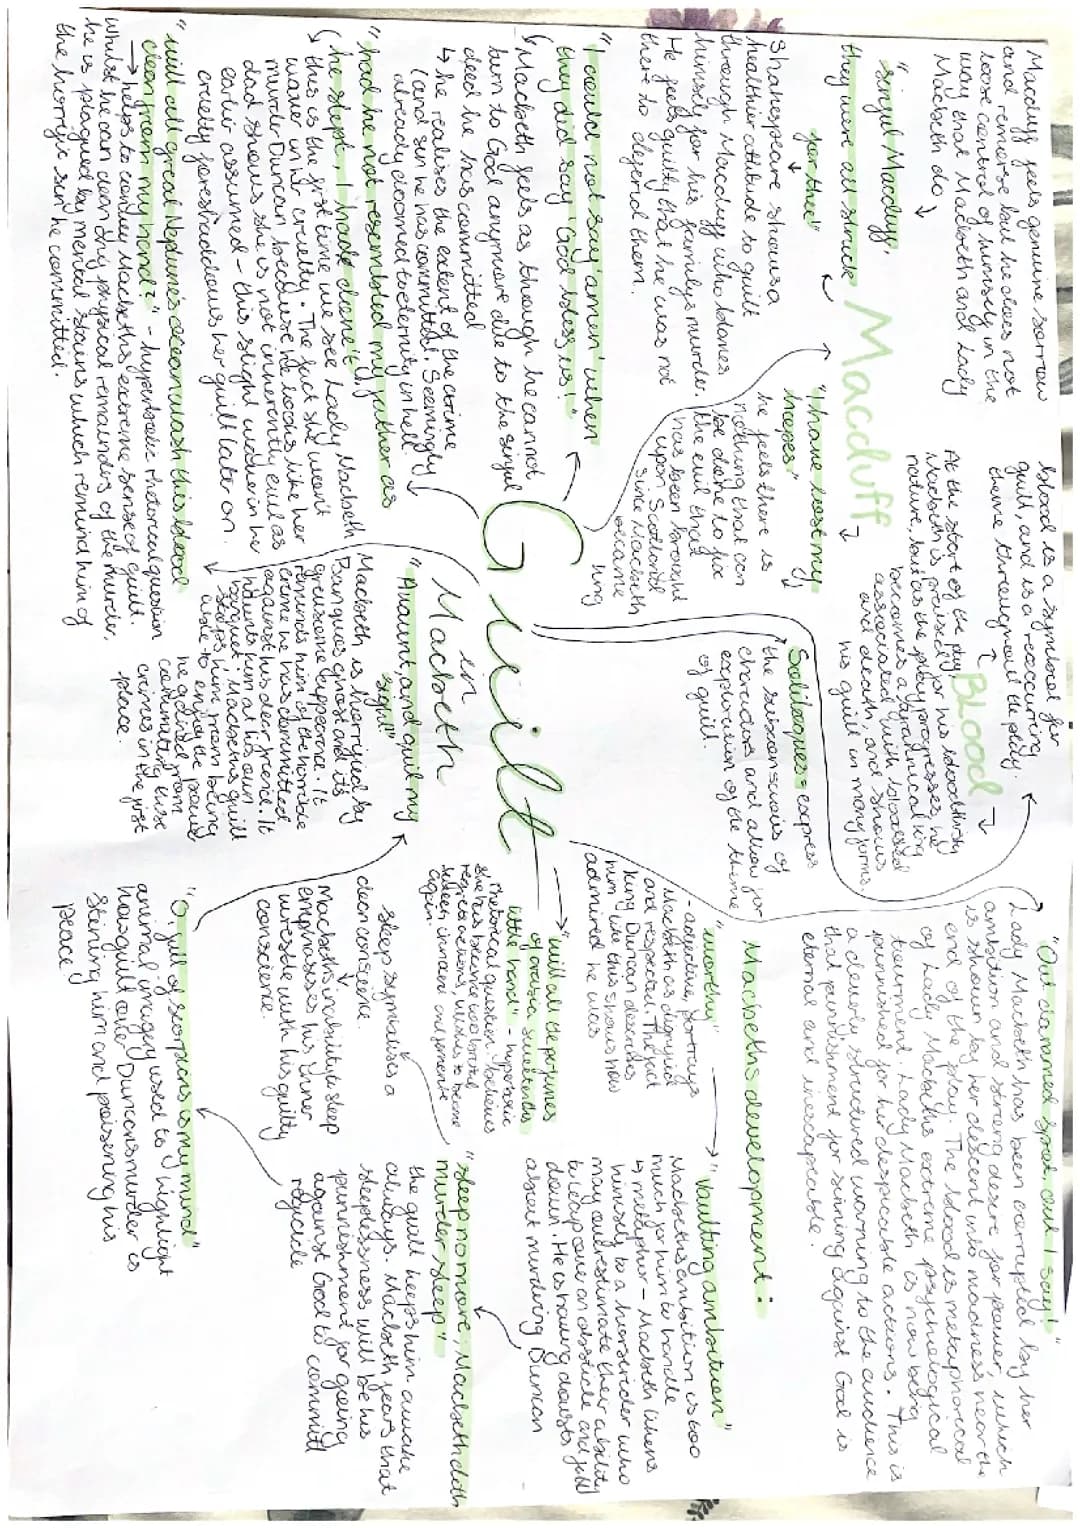 Macduff feels genuine sorrow
and remorse but he does not
loose control of himself in the
way that Macbeth and Lady
Macbeth do
"sinful Macduff,
they were all struck
for thee"
Macduff
Shakespeare shows a
healthier attitude to guilt
through Macduff who blames
himself for his family's murder.
He feels guilty that he was not
there to defend them.
"I have lost my
hopes"
he feels there is
nothing that can
be done to fix
the evil that
has been brought
upon Scotland
since Macbeth
became
king
blood is a symbol for
guilt, and is a reoccurring
theme throughout the play.
Blood
At the start of the play,
Macbeth is praised for his bloodthirsty
nature, but as the play progresses, he
becomes a tyrannical king
associated with blood
and death, and shows
his guilt in many forms.
"Out damned spot, out I say!"
Lady Macbeth has been corrupted by her
ambition and strong desire for power, which
is shown by her descent into madness near the
end of the play. The blood is metaphorical
of Lady Macbeth's extreme psychological
tourment. Lady Macbeth is now being
punnished for her despicable actions. This is
a cleverly structured warning to the audience
that punishment for sinning against God is
eternal and inescapable.
Soliloquies = express
the subconscious of
characters and allow for
exploration of the theme
of guilt.
Guilt
in
Macbeth
"I could not say 'amen' when
they did say 'God bless us'!"
Macbeth feels as though he cannot
turn to God anymore due to the sinful
deed he has committed
↳ he realises the extent of the crime
(and sin he has committed). Seemingly
already doomed to eternity in hell
"had he not resembled my father as
he slept I had done't"
this is the first time we see Lady Macbeth
waver in her cruelty. The fact she won't
murder Duncan because he looks like her
dad shows she is not inherently evil as
earlier assumed - this slight waver in her
cruelty foreshaddows her guilt later on.
"will all great Neptune's ocean wash this blood
clean from my hand?" - hyperbolic rhetorical question
→ helps to convey Macbeth's extreme sense of guilt.
Whilst he can clean any physical remainders of the murder,
he is plagued by mental stains which remind him of
the horrific sin he committed.
"Avaunt, and quit my
sight"
Macbeth is horrified by
Banquo's ghost and its
gruesome appearence. It
reminds him of the horrible
crime he has committed
against his dear friend. It
haunts him at his own
banquet; Macbeth's guilt
stops him from being
able to enjoy the power
he gained from
committing these
crimes in the first
place.
Macbeth's development:
"worthy"
- adjective, portrays
Macbeth as dignified
and respected. The fact
King Duncan describes
him like this shows how
admired he was
"Vaulting ambition"
Macbeth's ambition is too
much for him to handle
↳ metaphor - Macbeth likens
himself to a horserider who
may overestimate their ability
to leap over an obstacle and fall
down. He is having doubts
about murdering Duncan
"will all the perfumes
of arabia sweeten this
little hand" - hyperbolic
rhetorical question. believes
she has become too brutal
regrets actions, wishes to become
again.
"sleep no more, Macbeth doth
murder sleep"
the guilt keeps him awake
always. Macbeth fears that
sleeplessness will be his
punnishment for going
against God to committ
regicide
sleep symbolises a
clean conscience.
Macbeth's inability to sleep
emphasises his inner
wrestle with his guilty
conscience.
"O full of scorpions is my mind"
animal imagery used to highlight
how guilt over Duncan's murder is
stinging him and poisoning his
peace